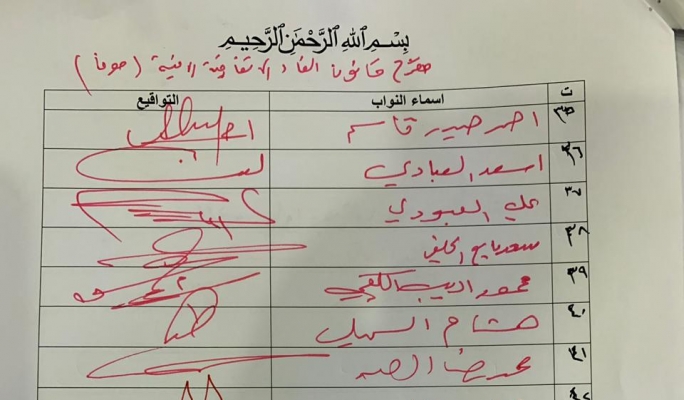 بسم الله الرحمن الرحيم
مقترح قانون الغاء الاتفاقية الامنية (صوفا)
ت اسماء النواب التواقيع
٣٥ احمد حيدر قاسم
٣٦ اسعد العبادي
٣٧ علي العبودي
٣٨ سعد
٣٩ محمود اديب الكلفي
٤٠ هشام السهيل
٤١ محمد رضا
٤٢